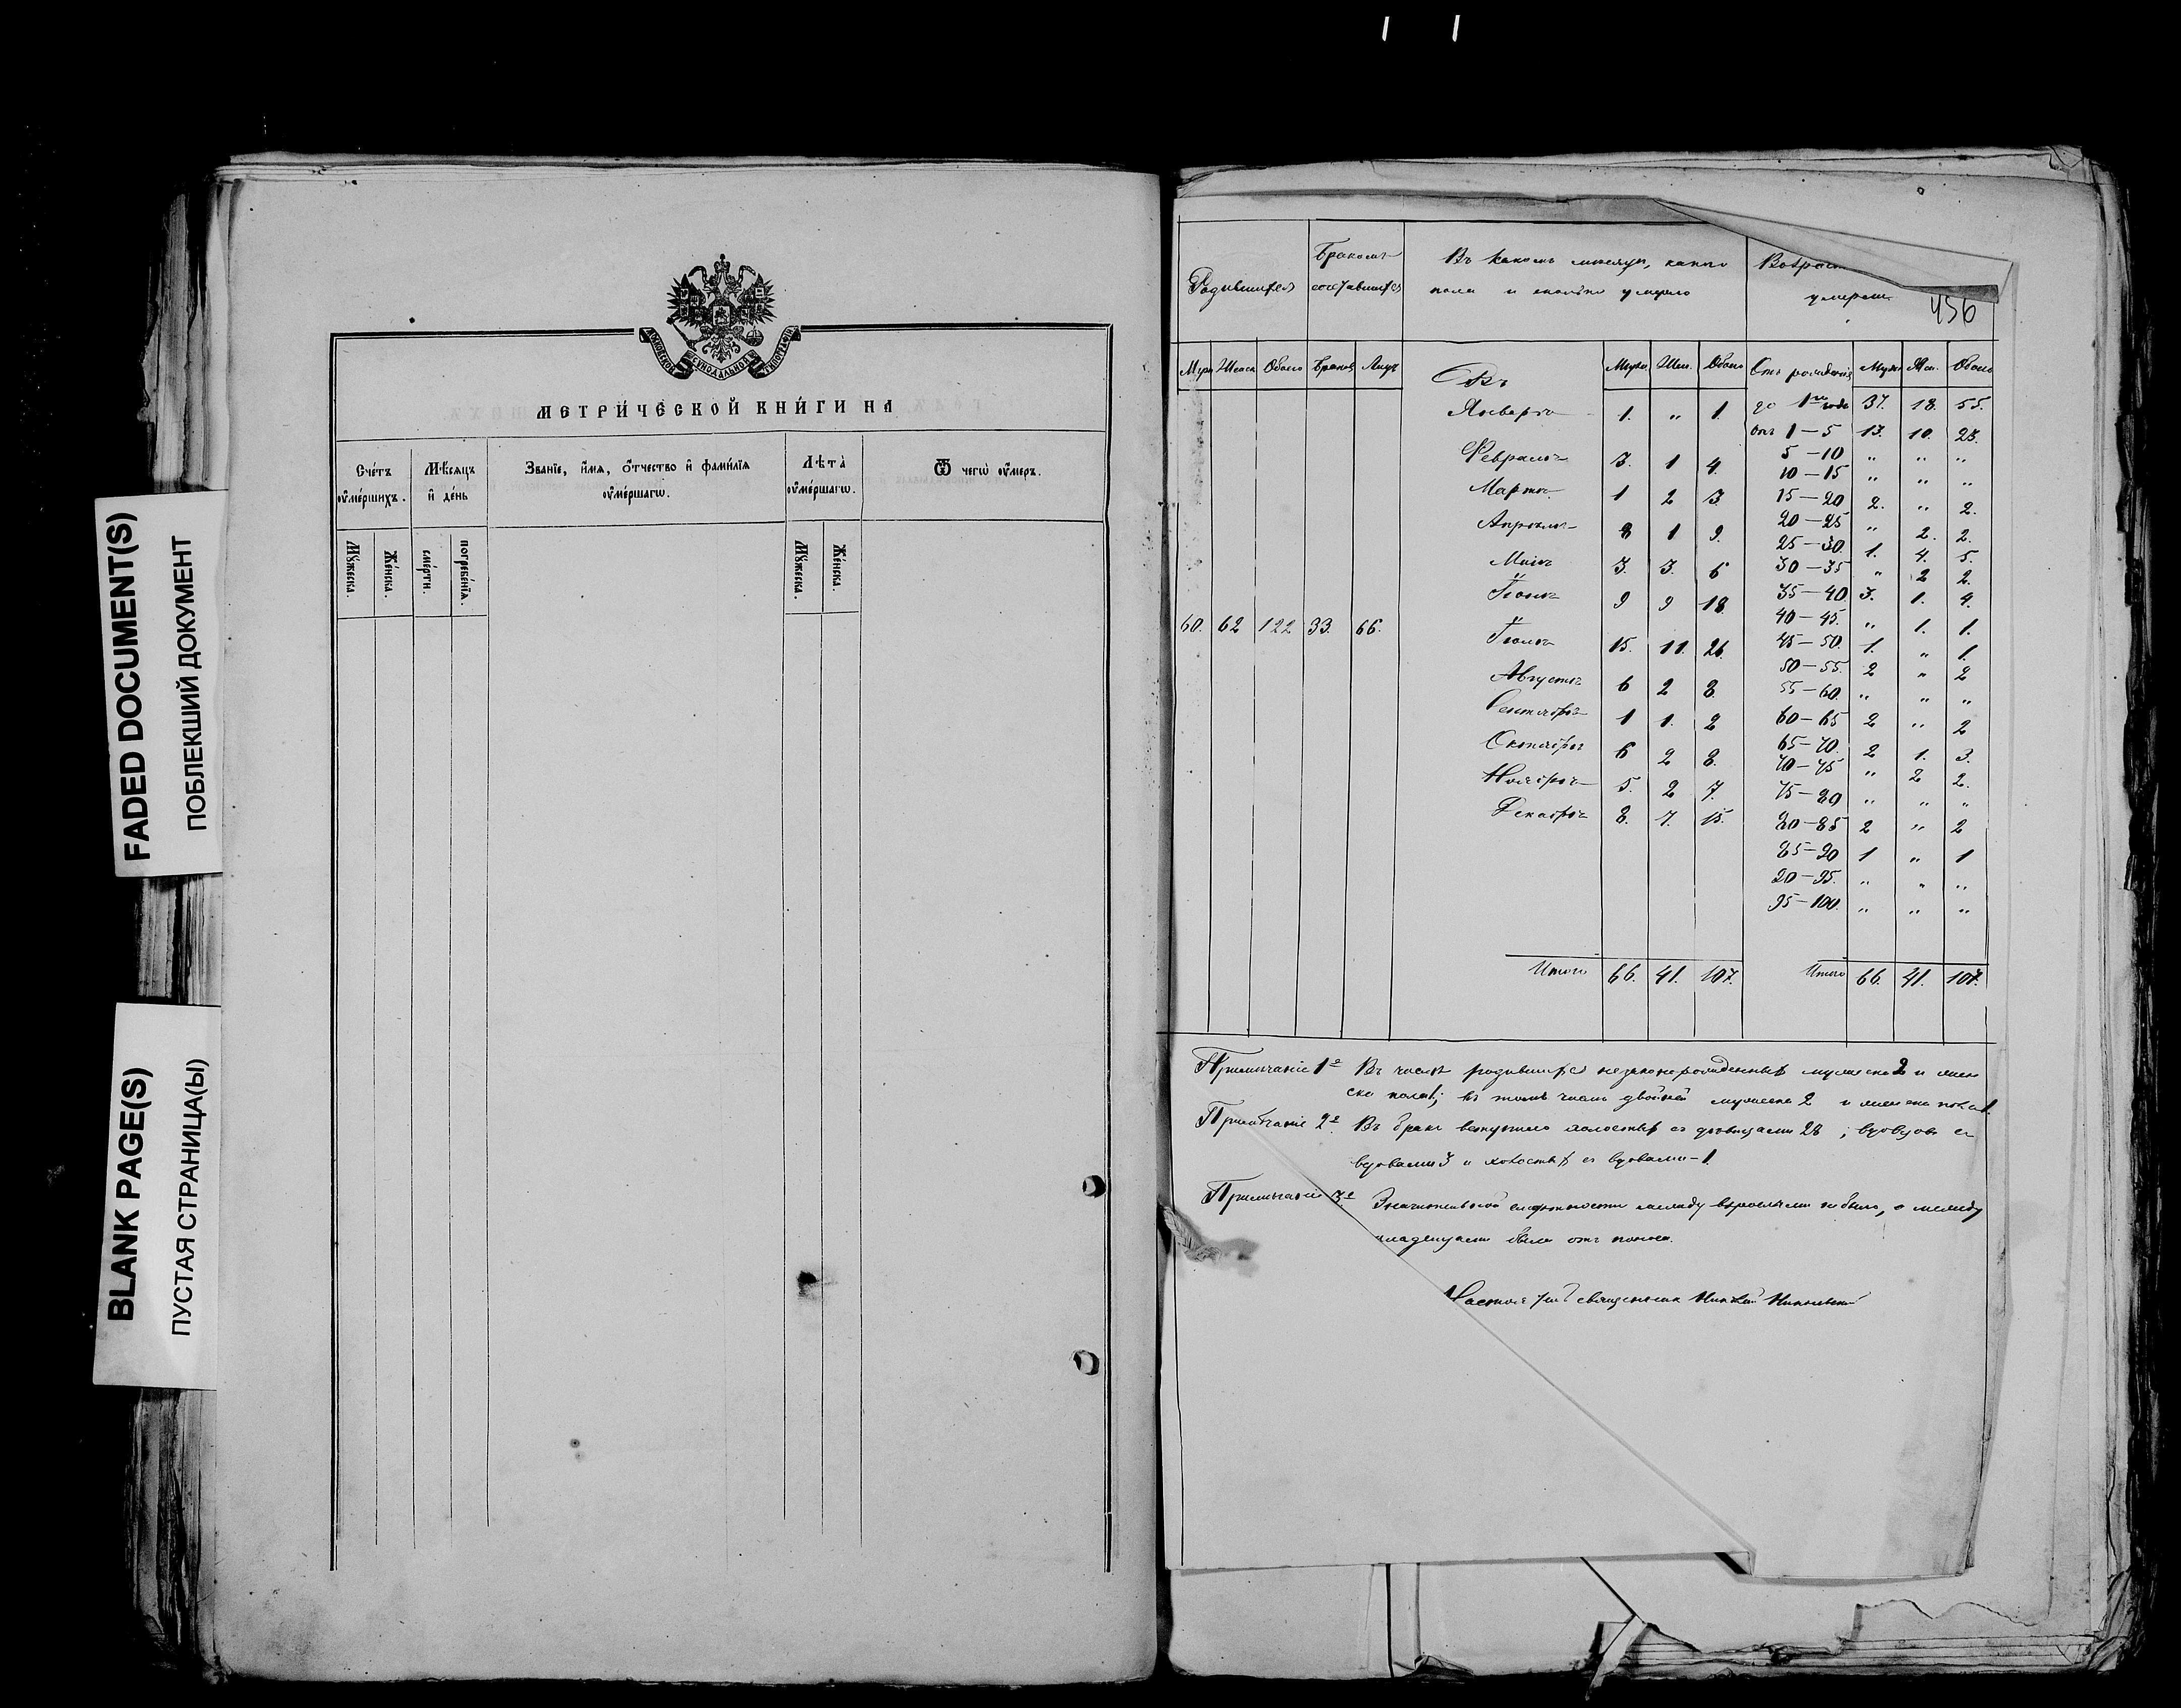 FADED DOCUMENT(S)
ПОБЛЕКШИЙ ДОКУМЕНТ
BLANK PAGE(S)
ПУСТАЯ СТРАНИЦА(Ы)
МОСКОВСКОЙ СѴНОДАЛЬНОЙ ТИПОГРАФІИ
МЕТРИ́ЧЕСКОЙ КНИ́ГИ НА
Сче́тъ оу҆ме́ршихъ.
Мѣ́сяцъ и҆ де́нь
Зва́нїе, и҆́мя, ѻ҆́тчество и҆ фами́лїя оу҆ме́ршагѡ.
Лѣ́та оу҆ме́ршагѡ.
Ѿ чегѡ̀ оу҆́меръ.
Мꙋ́жеска.
Же́нска.
сме́рти.
погребе́нїя.
Мꙋ́жеска.
Же́нска.
456
Родившихся
Бракомъ сочетавшихся
Въ какомъ мѣсяцѣ, какого
пола и сколько умерло
Возраст
умерших
Муж Женск Обоего Браковъ Лицъ
Въ Муж. Жен. Обоего
Отъ рожденія Муж Жен. Обоего
Январѣ 1. „ 1.
до 1го года 37. 18. 55.
отъ 1—5 13. 10. 23.
Февралѣ 3. 1 4.
5—10 „ „ „
10—15 „ „ „
Мартѣ 1 2 3
15—20 2. „ 2.
Апрѣлѣ 8 1 9.
20—25 „ 2. 2.
25—30. 1. 4. 5.
Маѣ 3. 3. 6
30—35 „ 2 2.
Іюнѣ 9 9 18.
35—40 3. 1. 4.
40—45. „ 1. 1.
60. 62 122 33. 66.
Іюлѣ 15. 11. 26.
45—50. 1. „ 1.
50—55. 2 „ 2
Августѣ 6 2 8.
55—60. „ „ „
Сентябрѣ 1 1. 2
60—65 2 „ 2
Октябрѣ 6 2 8.
65—70. 2 1. 3.
70—75 „ 2 2.
Ноябрѣ 5. 2 7.
75—80 „ „ „
Декабрѣ 8. 7. 15.
80—85 2 „ 2
85—90 1 „ 1
90—95. „ „ „
95—100. „ „ „
Итого 66. 41. 107.
Итого 66. 41. 107.
Примѣчаніе 1е Въ числѣ родившихся незаконорожденныхъ мужеска 2 и жен
ска пола 1; въ томъ числѣ двойней мужеска 2 и женска пола 1.
Примѣчаніе 2е. Въ бракъ вступило холостыхъ съ дѣвицами 28; вдовцовъ съ
вдовами 3 и холостыхъ съ вдовами—1.
Примѣчаніе 3е Значительной смертности между взрослыми не было, а между
младенцами была отъ поноса.
Настоятель священникъ